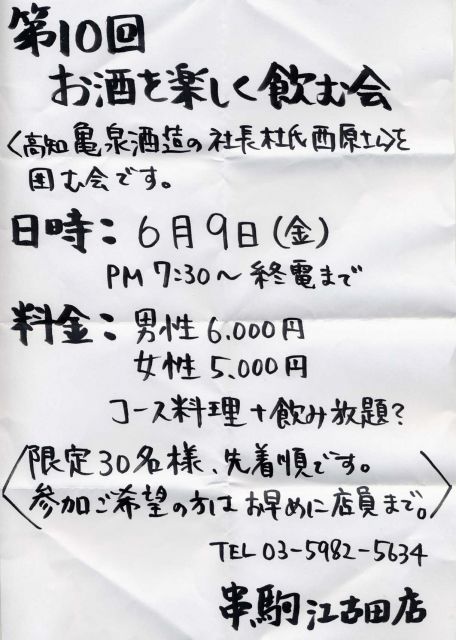 第10回
お酒を楽しく飲む会
〈高知 亀泉酒造の社長杜氏西原さん〉を
囲む会です。
日時：6月9日（金）
PM 7:30～終電まで
料金：男性 6.000円
女性 5.000円
コース料理＋飲み放題？
限定30名様、先着順です。
参加ご希望の方はお早めに店員まで。
TEL 03-5982-5634
串駒 江古田店